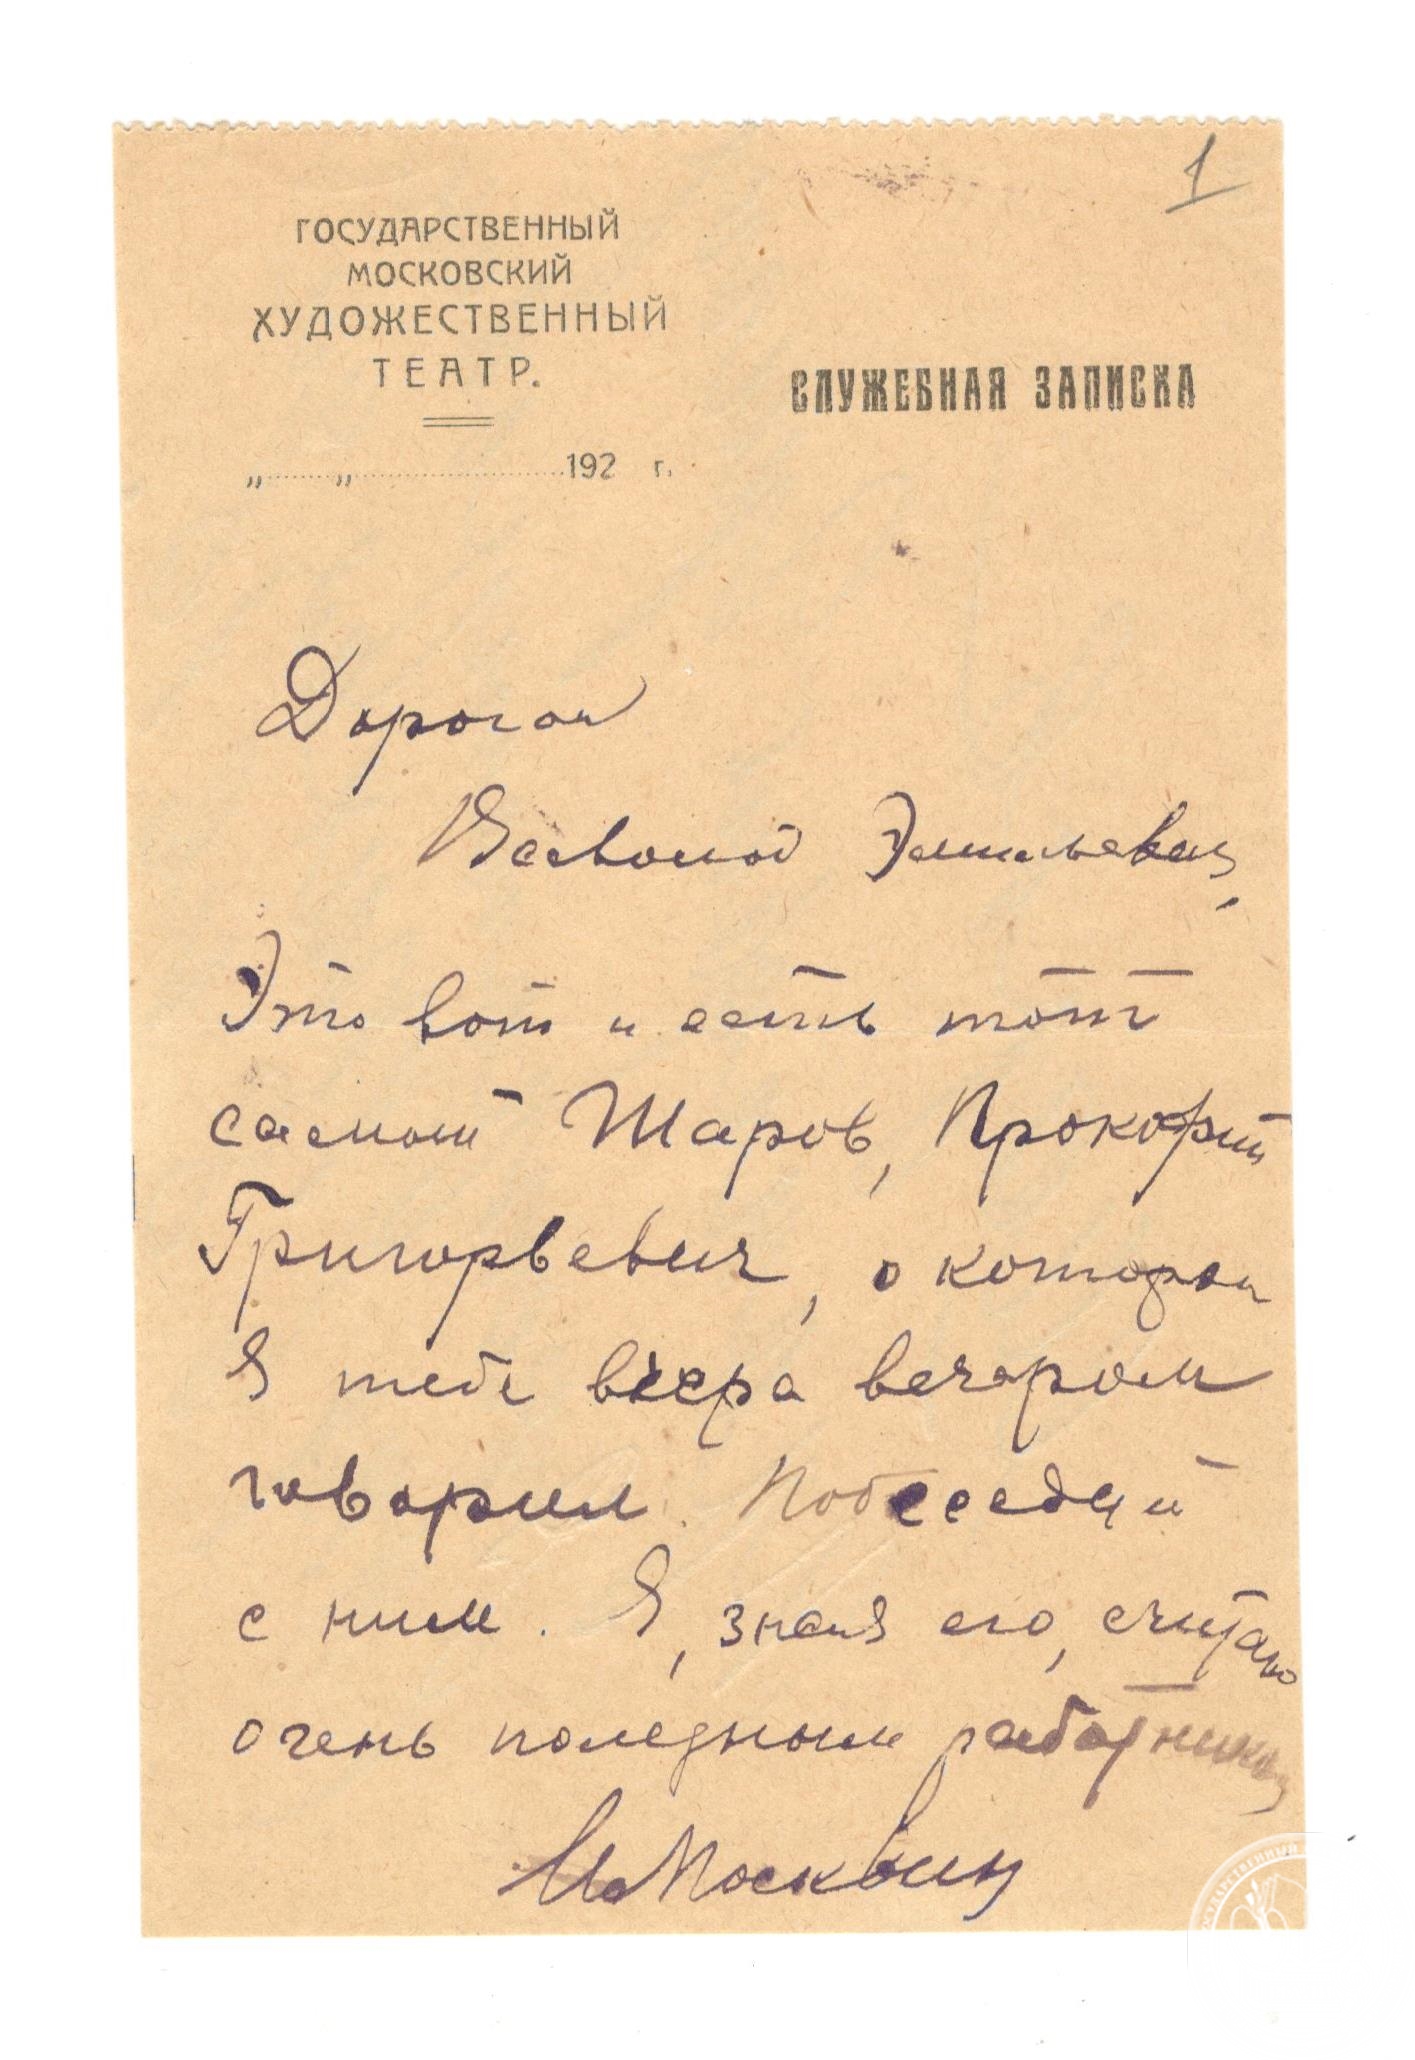 1
ГОСУДАРСТВЕННЫЙ
МОСКОВСКИЙ
ХУДОЖЕСТВЕННЫЙ
ТЕАТР.
СЛУЖЕБНАЯ ЗАПИСКА
„ „ 192 г.
Дорогой
Всеволод Эмильевич,
Это вот и есть тот
самый Шаров, Прокофий
Григорьевич, о котором
я тебе вчера вечером
говорил. Побеседуй
с ним. Я, зная его, считаю
очень полезным работником
И. Москвин